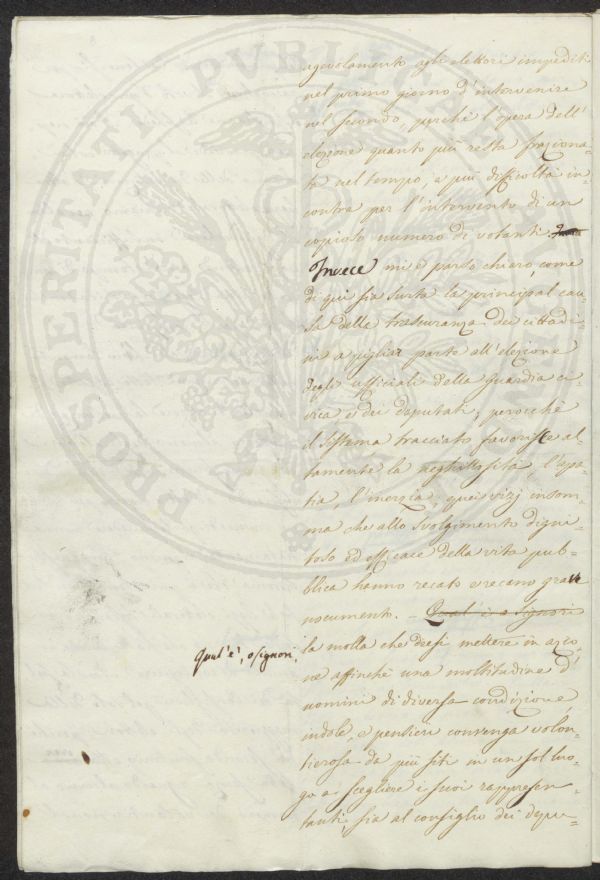 agevolamento agli elettori impediti
nel primo giorno d'intervenire
nel secondo, perchè l'opera dell'
elezione quanto più resta fraziona=
ta nel tempo, e più difficoltà in=
contra per l'intervento di un
copioso numero di votanti.
Invece mi è parso chiaro, come
di qui sia surta la principal cau=
sa della trascuranza dei cittadi=
ni a pigliar parte all'elezione
degli uffiziali della guardia ci=
vica e dei deputati; perocchè
il sistema tracciato favorisce al=
tamente la neghittosità, l'apa=
tia, l'inerzia, quei vizj insom=
ma che allo svolgimento digni=
toso ed efficace della vita pub=
blica hanno recato e recano grave
nocumento. – Qual è o Signori
Qual'è, o Signori,
la molla che deesi mettere in azio=
ne affinchè una moltitudine d'
uomini di diversa condizione,
indole, e pensieri convenga volon=
tierosa da più siti in un sol luo=
go a scegliere i suoi rappresen=
tanti, sia al consiglio dei depu=
PROSPERITATI PVBLICAE